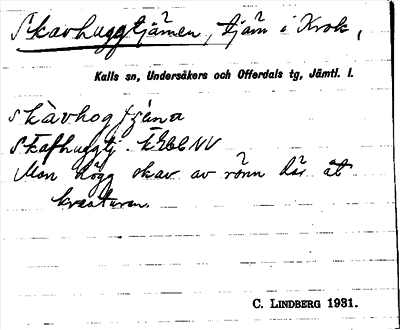 Skavhuggtjärnen, tjärn i Krok,
Kalls sn, Undersåkers och Offerdals tg, Jämtl. l.
skàvhog
Skafhuggtj.
Man högg skav av rönn här åt
kreaturen.
C. LINDBERG 1931.